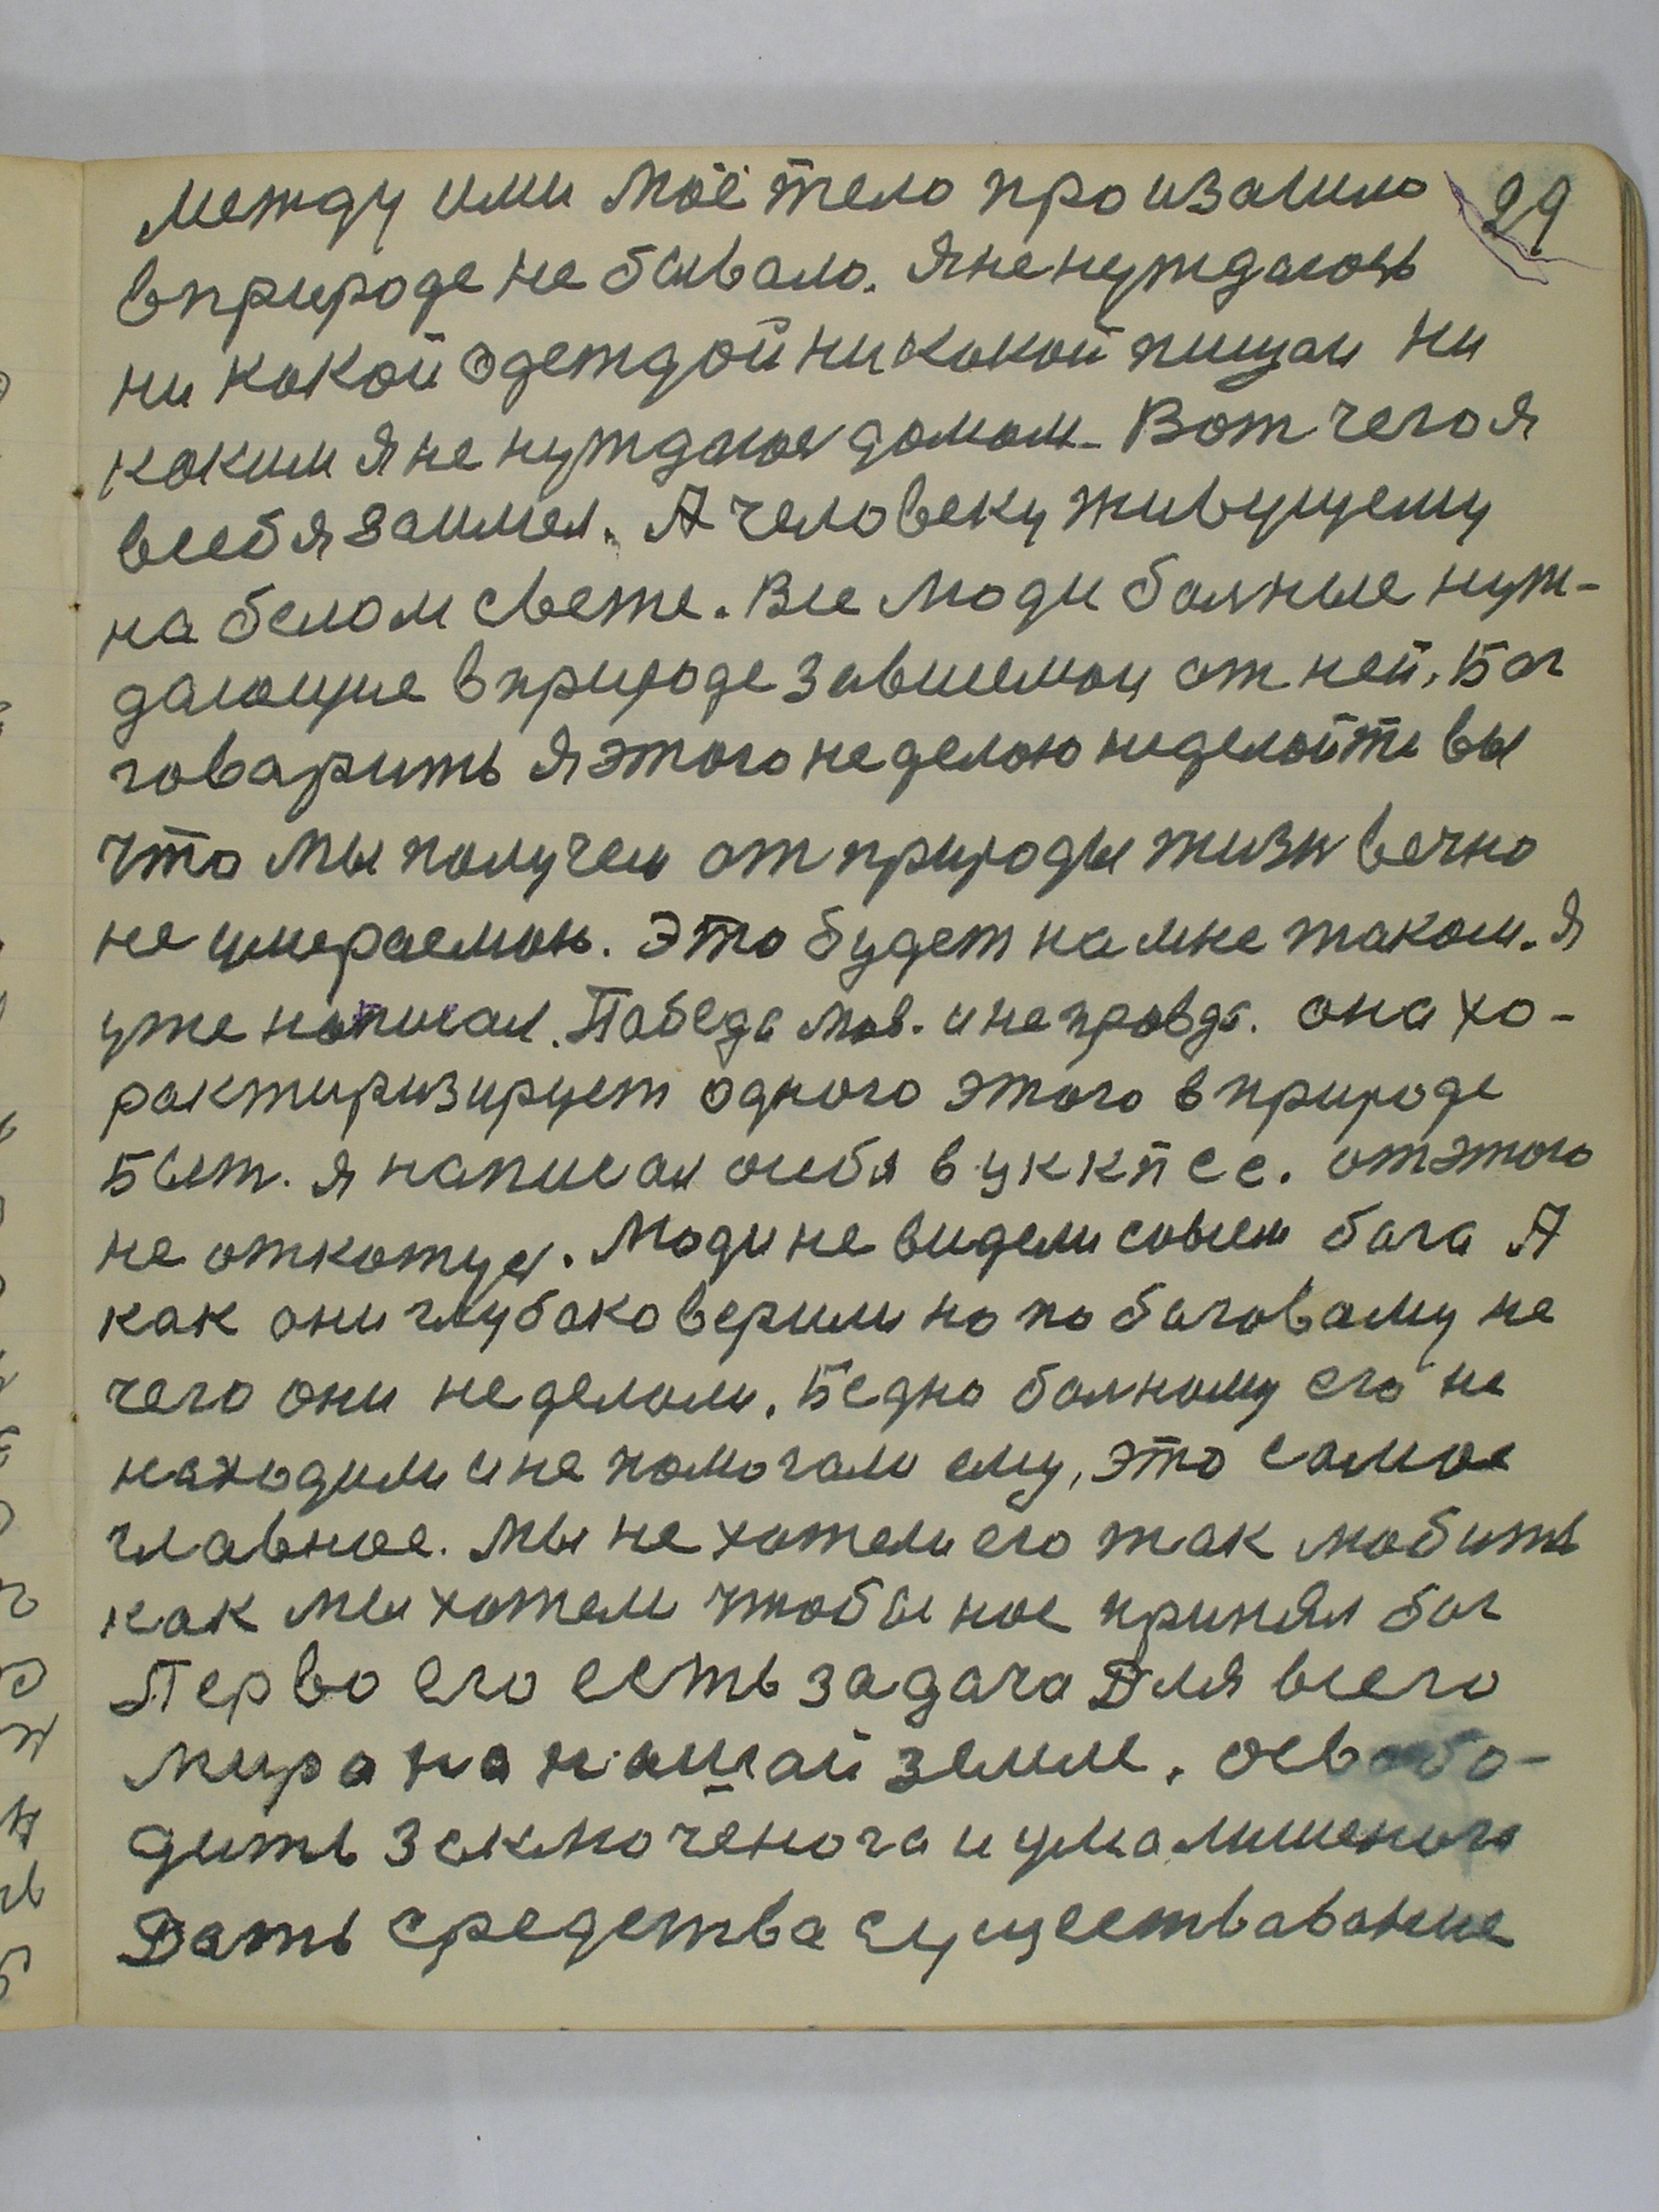 29
между ими моё тело произашло
в природе не бывало. Я не нуждаюсь
ни какой одеждой ни какой пищаи ни
каким я не нуждаюсь домом. Вот чего я
в себя заимел. А человеку живущему
на белом свете. Все люди болные нуж-
дающие в природе зависемои от ней. Бог
говарить я этого не делаю не делайте вы
что мы получем от природы жизн вечно
не умераемою. Это будет на мне таком. Я
уже написал. Победа моя. и не правда. она хо-
рактиризирует одного этого в природе
Быт. я написал о себя в ЦК КПСС. от этого
не откожус. Люди не видели совсем бога А
как они глубако верили но по боговаму не
чего они не делали. Бедно болному его не
находили и не помогали ему, это самое
главное. мы не хотели его так любить
как мы хотели чтобы нас принял бог
Перво его есть задача Для всего
мира на нашай земле. освабо-
дить заключёнога и умалишеного
Дать средства существавание